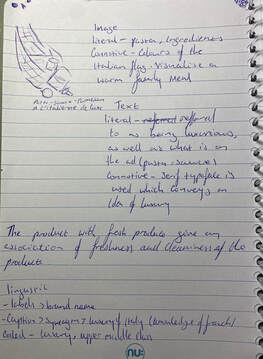 Image
literal - pasta, ingredients
Connotive - Colours of the
Italian flag. Visualise a
warm family meal
Text
literal - referred referred
to as being luxurious,
as well as what is on
the ad (pasta + sauce)
Connotive - Serif typeface is
used which conveys an
idea of luxury
The product with fresh produce give an
association of freshness and cleanliness of the
products
linguistic
- labels > brand name
- Caption > synergy > luxury of italy (knowledge of french)
Coded - luxury, upper middle class
nu: